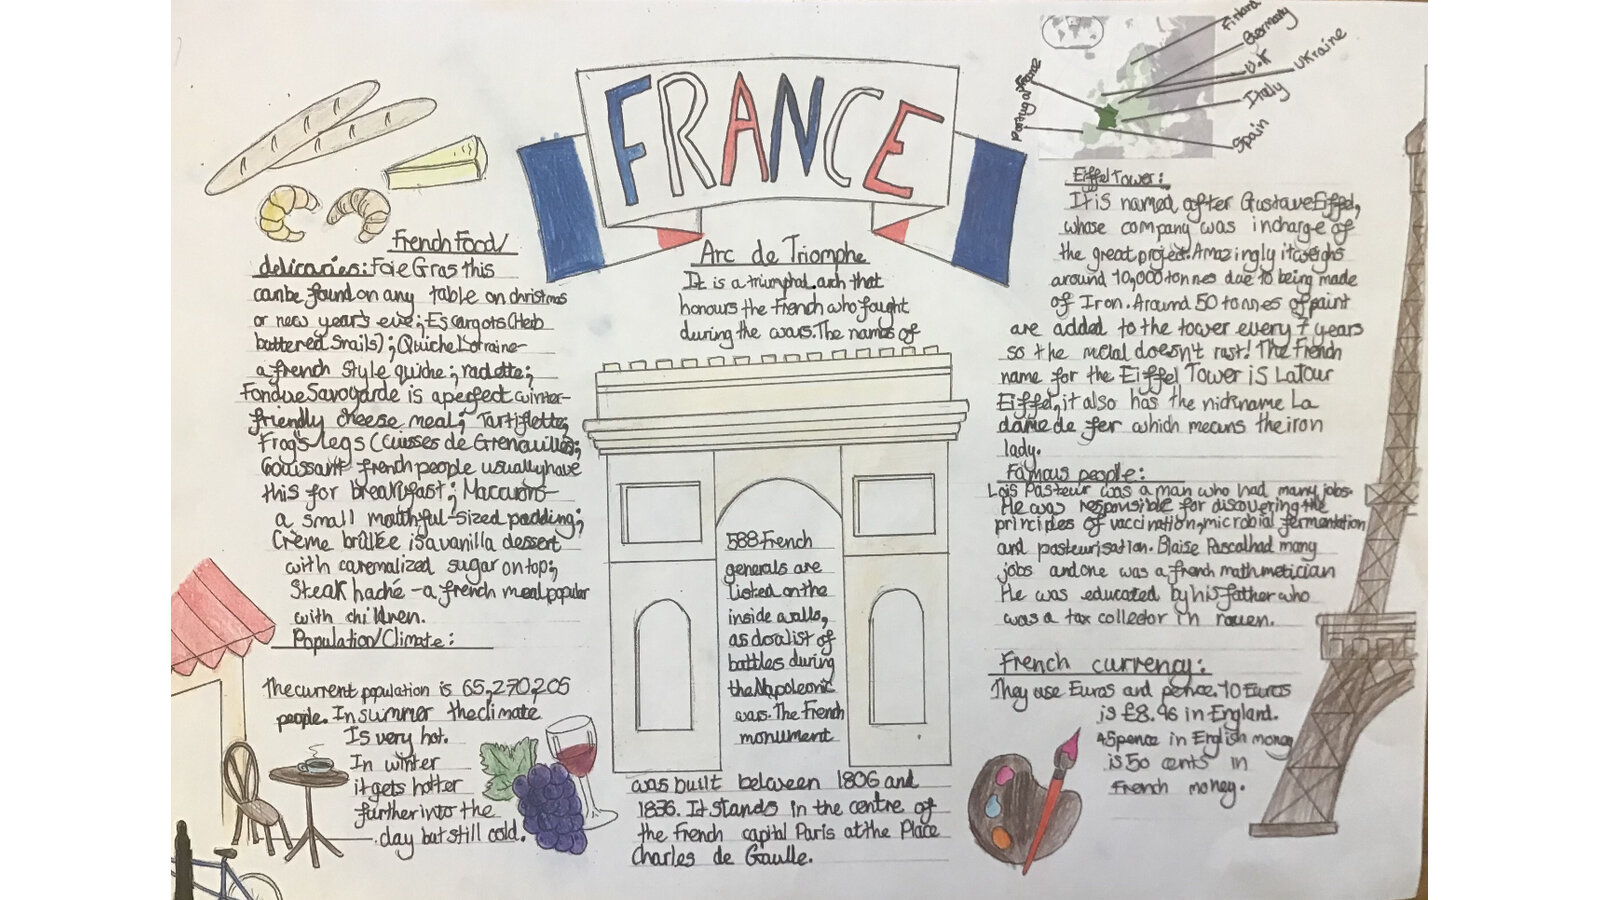 FRANCE
Finland
Germany
U.K
Ukraine
Italy
Spain
France
Portugal
French Food/
delicaries: Foie Gras this
can be found on any table on christmas
or new year's eve; Escargots (Herb
buttered Snails); Quiche Lorraine-
a french style quiche; raclette;
Fondue Savoyarde is a perfect winter-
friendly cheese meal; Tartiflette;
Frog's legs (Cuisses de Grenouilles;
Crouissant french people usually have
this for breakfast; Maccarons-
a small mouthful-sized pudding;
Crème brûlée is a vanilla dessert
with caremalized sugar on top;
Steak haché - a french meal popular
with children.
Population/Climate:
The current population is 65,270,205
people. In summer the climate
Is very hot.
In winter
it gets hotter
further into the
day but still cold.
Arc de Triomphe
It is a triumphal arch that
honours the French who fought
during the wars. The names of
588 French
generals are
listed on the
inside walls,
as do a list of
battles during
the Napoleonic
wars. The French
monument
was built between 1806 and
1836. It stands in the centre of
the French capital Paris at the Place
Charles de Gaulle.
Eiffel Tower:
It is named after Gustave Eiffel,
whose company was in charge of
the great project. Amazingly it weighs
around 10,000 tonnes due to being made
of Iron. Around 50 tonnes of paint
are added to the tower every 7 years
so the metal doesn't rust! The French
name for the Eiffel Tower is La tour
Eiffel, it also has the nickname La
dame de fer which means the iron
lady.
Famous people:
Lois Pasteur was a man who had many jobs.
He was responsible for discovering the
principles of vaccination, microbial fermentation
and pasteurisation. Blaise Pascal had many
jobs and one was a french mathmetician
He was educated by his father who
was a tax collector in rouen.
French currency:
They use Euros and pence. 10 Euros
is £8.96 in England.
45 pence in English money
is 50 cents in
French money.